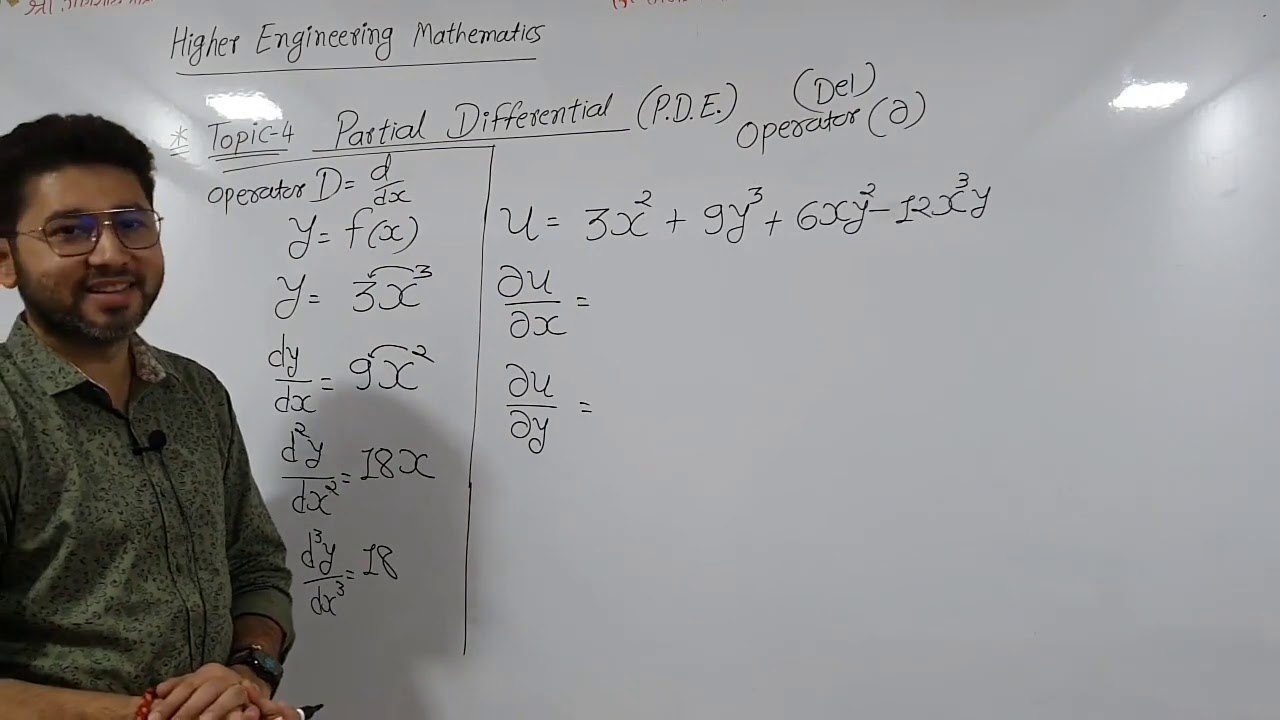 श्री
Higher Engineering Mathematics
* Topic-4 Partial Differential (P.D.E.) (Del)
Operator (∂)
Operator D = d/dx
y = f(x)
y = 3x³
dy/dx = 9x²
d²y/dx² = 18x
d³y/dx³ = 18
u = 3x² + 9y³ + 6xy² - 12x³y
∂u/∂x =
∂u/∂y =